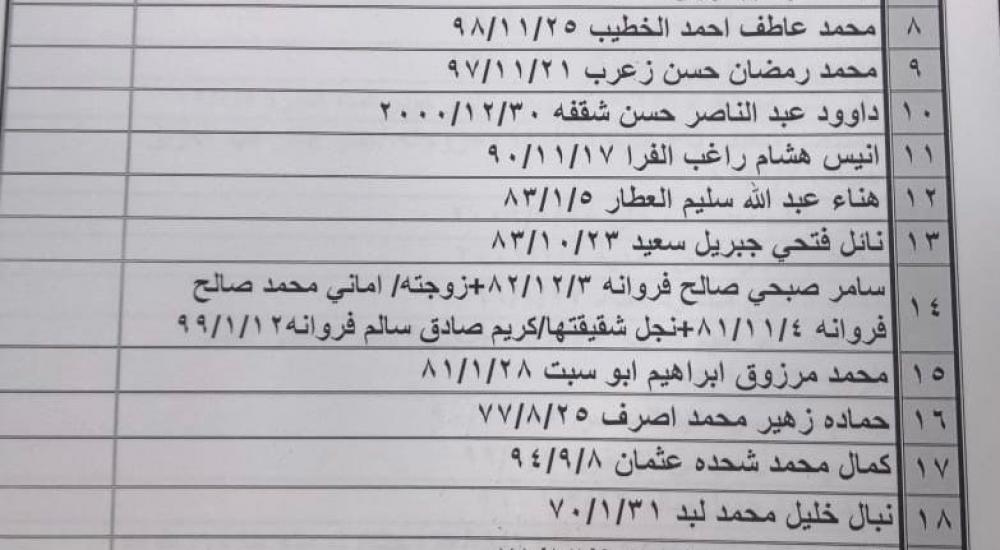 ٨ محمد عاطف احمد الخطيب ٩٨/١١/٢٥
٩ محمد رمضان حسن زعرب ٩٧/١١/٢١
١٠ داوود عبد الناصر حسن شقفه ٢٠٠٠/١٢/٣٠
١١ انيس هشام راغب الفرا ٩٠/١١/١٧
١٢ هناء عبد الله سليم العطار ٨٣/١/٥
١٣ نائل فتحي جبريل سعيد ٨٣/١٠/٢٣
١٤ سامر صبحي صالح فروانه ٨٢/١٢/٣+زوجته/ اماني محمد صالح
فروانه ٨١/١١/٤+نجل شقيقتها/كريم صادق سالم فروانه٩٩/١/١٢
١٥ محمد مرزوق ابراهيم ابو سبت ٨١/١/٢٨
١٦ حماده زهير محمد اصرف ٧٧/٨/٢٥
١٧ كمال محمد شحده عثمان ٩٤/٩/٨
١٨ نبال خليل محمد لبد ٧٠/١/٣١